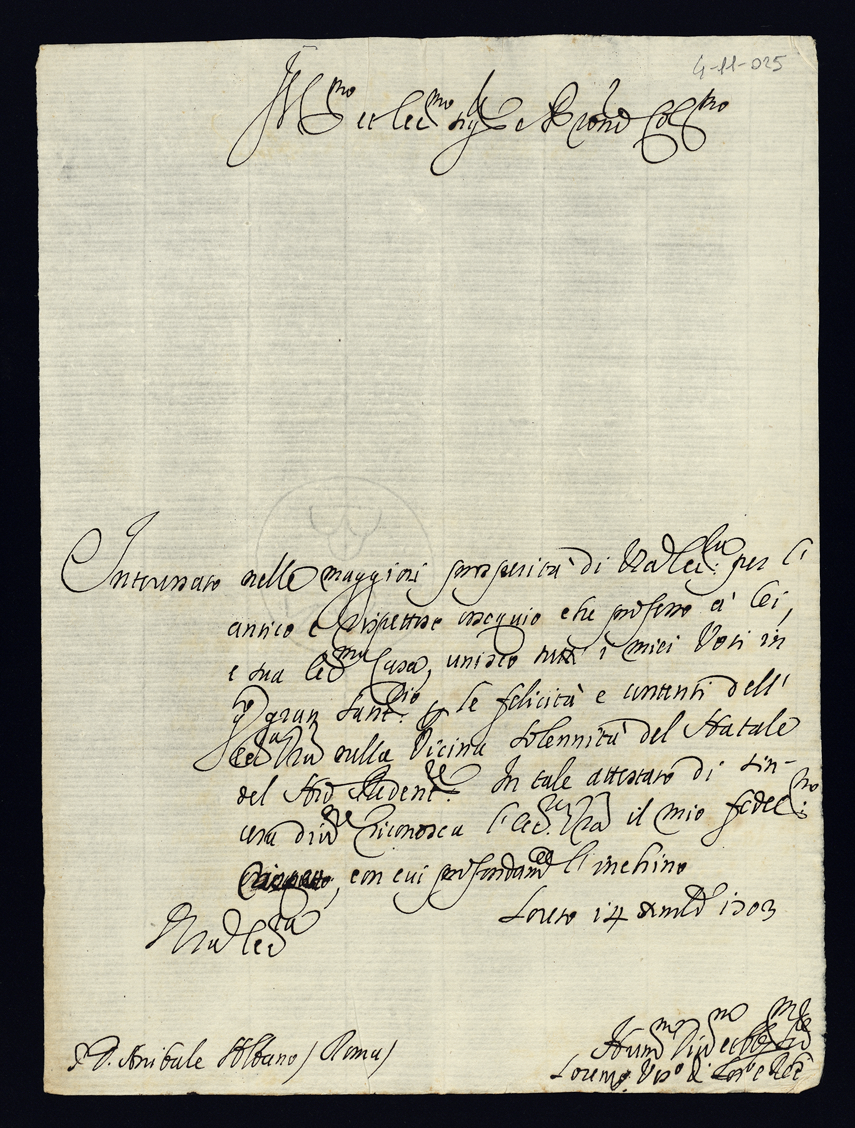 4-11-025
Ill.mo et Ecc.mo Sig.re e Pron Col.mo
Interessato nelle maggiori prosperità di Vra Ecc.za per l'
antico e rispettoso ossequio che professo à lei,
e sua Ecc.ma Casa, unisco tutti i miei Voti in
q.o gran Sant.rio p le felicità e contenti dell'
Ecc.a Vra nella Vicina Solennità del Natale
del Nro Redent.re. In tale attestato di sin-
cera div.ne riconosca l'Ecc.a Vra il mio fedel.mo
rispetto, con cui profondam.te l'inchino
Loreto 14 Xmbre 1703
Vra Ecc.za
D. Anibale Albano / Roma /
Hum.mo Div.mo et Obb
Lorenzo Vesc.o di e